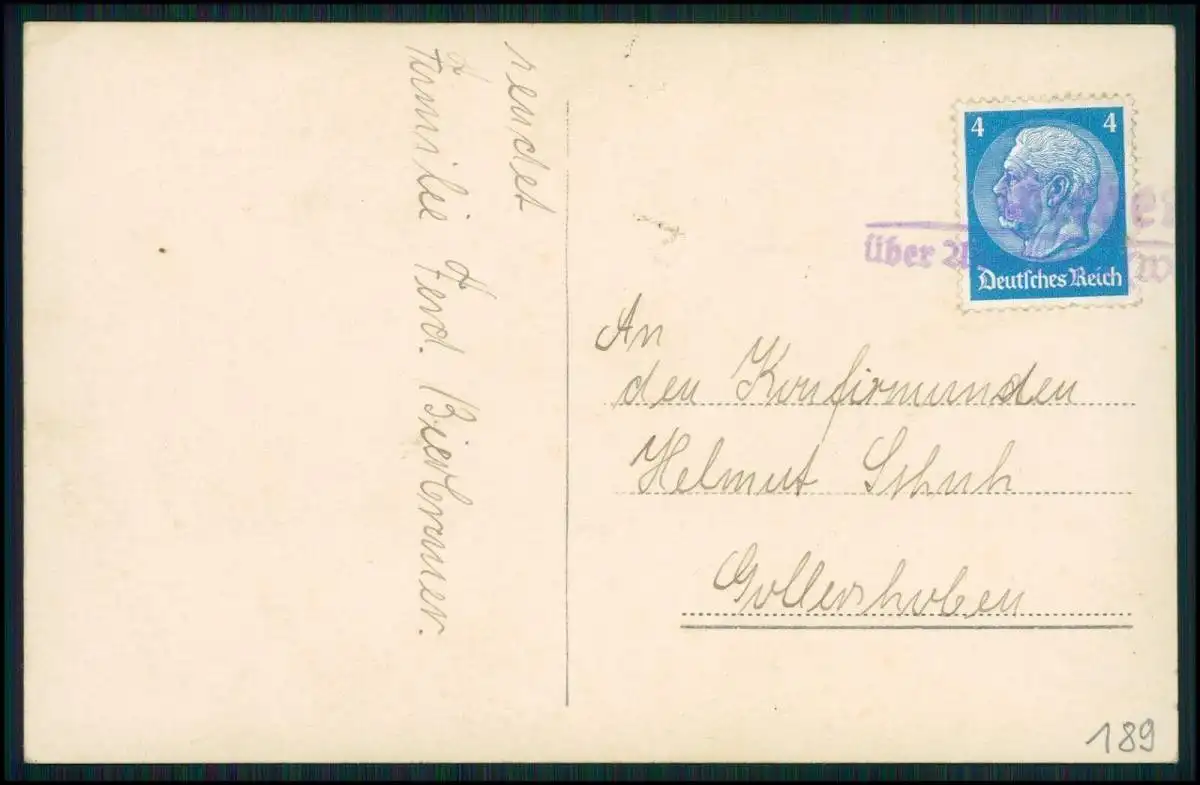 sendet
Familie Ferd. Bierbrauer.
4 4
Deutsches Reich
über
An
den Konfirmanden
Helmut Schuh
Gollershoben
189